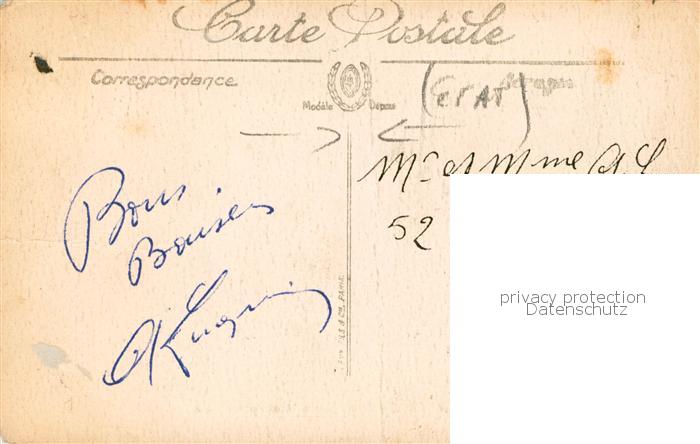 Carte Postale
Correspondance
Modèle Déposé
(ETAT)
Bons
Baisers
Mr et Mme A.
52
privacy protection
Datenschutz